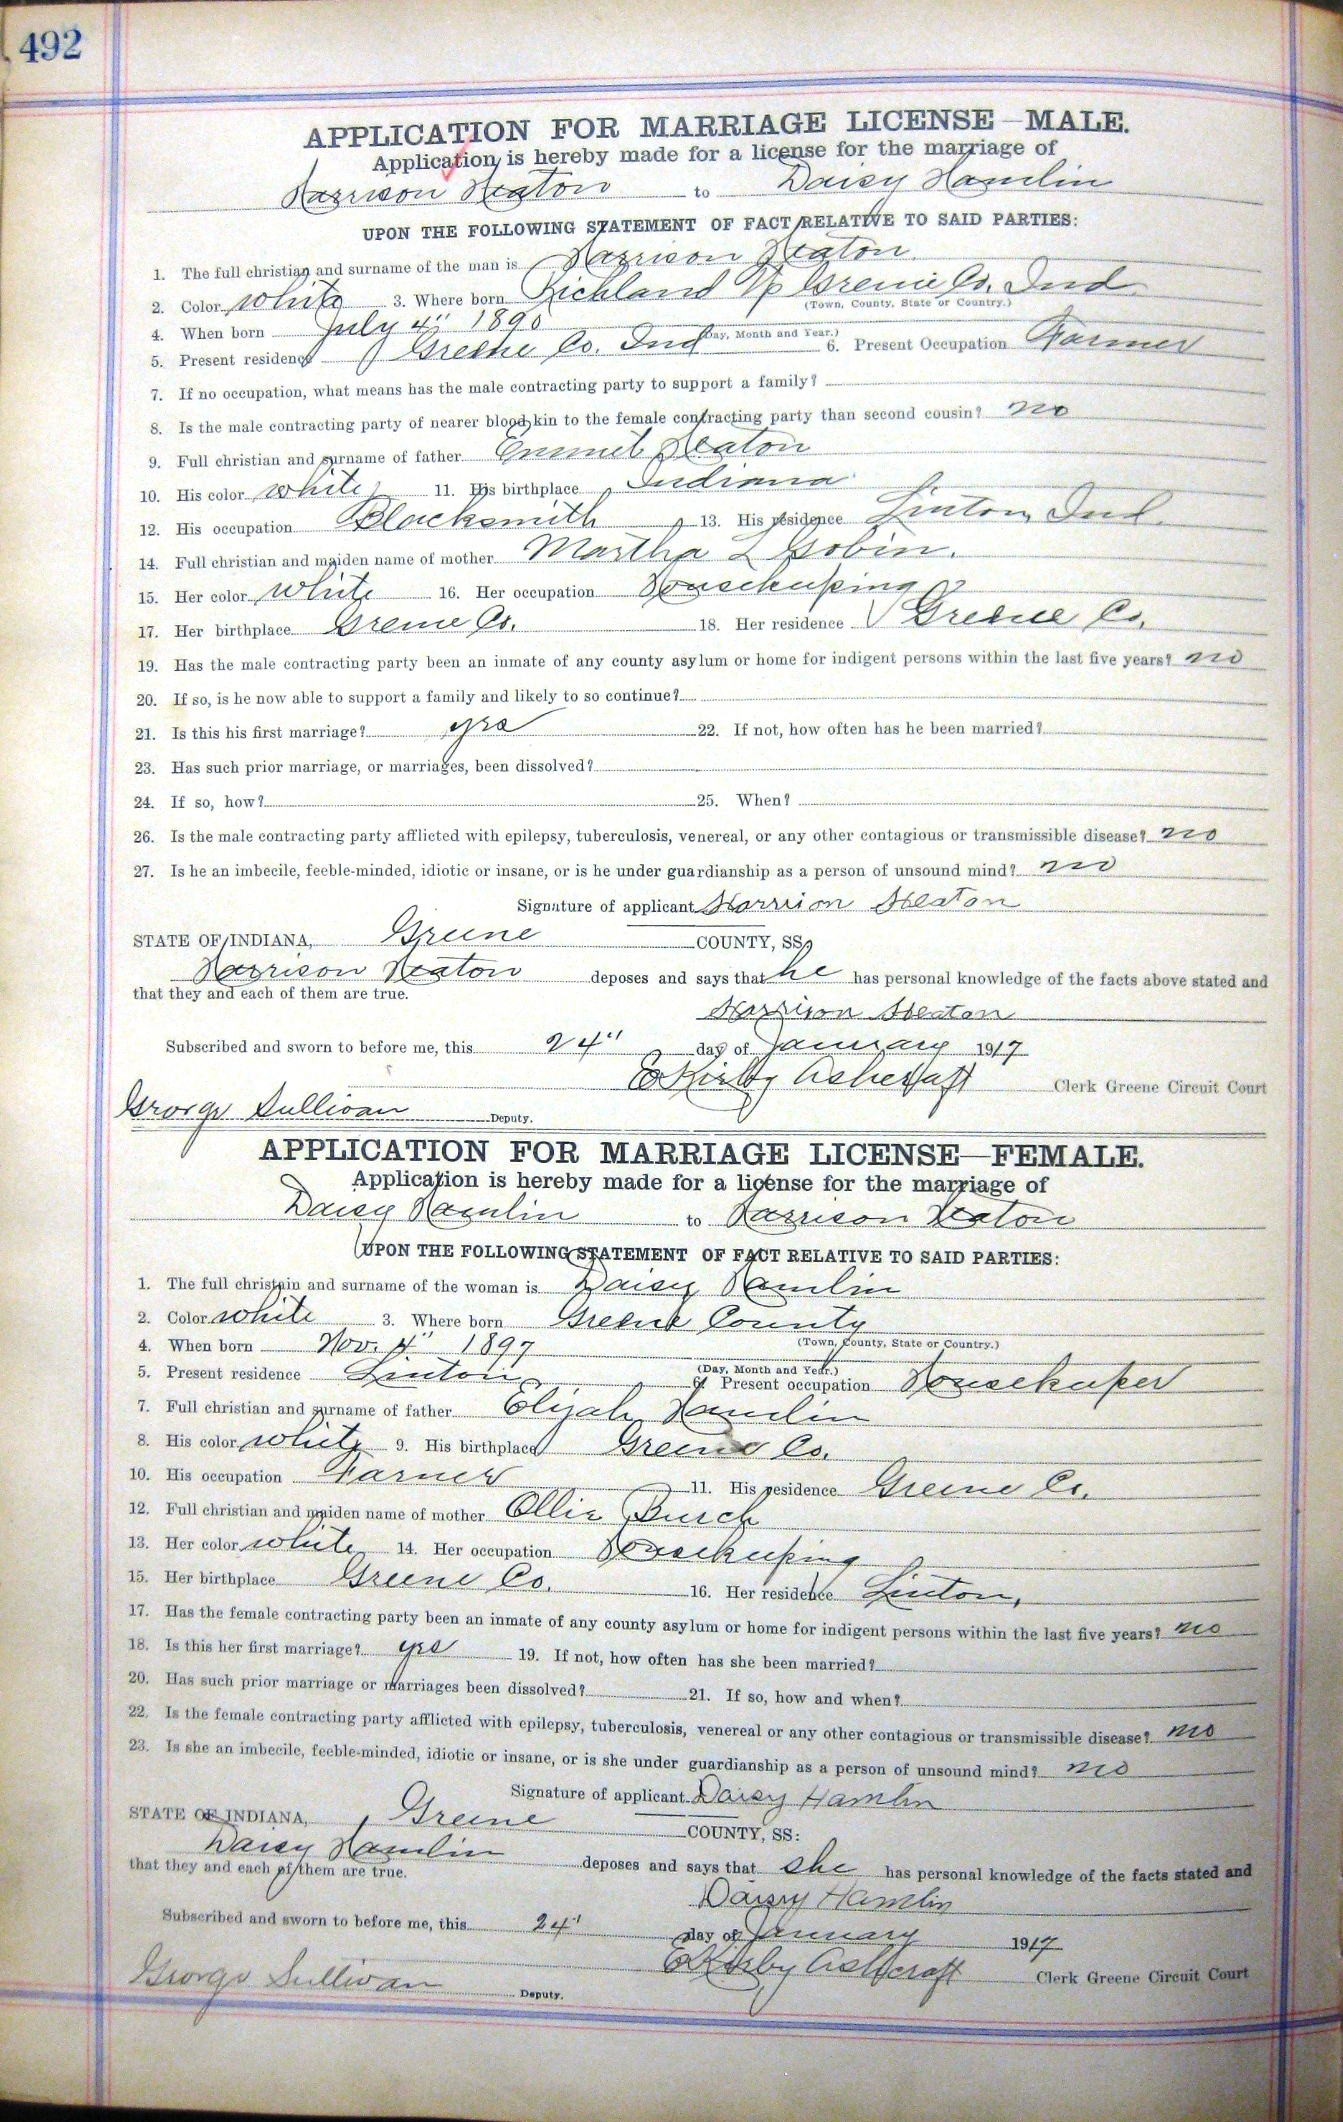 492
APPLICATION FOR MARRIAGE LICENSE—MALE.
Application is hereby made for a license for the marriage of
Harrison Heaton to Daisy Hamlin
UPON THE FOLLOWING STATEMENT OF FACT RELATIVE TO SAID PARTIES:
1. The full christian and surname of the man is Harrison Heaton.
2. Color white 3. Where born Richland Tp Greene Co. Ind
(Town, County, State or Country.)
4. When born July 4" 1890
(Day, Month and Year.)
5. Present residence Greene Co. Ind 6. Present Occupation Farmer
7. If no occupation, what means has the male contracting party to support a family?
8. Is the male contracting party of nearer blood kin to the female contracting party than second cousin? no
9. Full christian and surname of father Heaton
10. His color white 11. His birthplace Indiana
12. His occupation Blacksmith 13. His residence Linton, Ind.
14. Full christian and maiden name of mother Martha L Gobin.
15. Her color white 16. Her occupation Housekeeping
17. Her birthplace Greene Co. 18. Her residence Greene Co.
19. Has the male contracting party been an inmate of any county asylum or home for indigent persons within the last five years? no
20. If so, is he now able to support a family and likely to so continue?
21. Is this his first marriage? yes 22. If not, how often has he been married?
23. Has such prior marriage, or marriages, been dissolved?
24. If so, how? 25. When?
26. Is the male contracting party afflicted with epilepsy, tuberculosis, venereal, or any other contagious or transmissible disease? no
27. Is he an imbecile, feeble-minded, idiotic or insane, or is he under guardianship as a person of unsound mind? no
Signature of applicant Harrison Heaton
STATE OF INDIANA, Greene COUNTY, SS
Harrison Heaton deposes and says that he has personal knowledge of the facts above stated and
that they and each of them are true.
Harrison Heaton
Subscribed and sworn to before me, this 24" day of January 1917
E Kirby Ashcraft Clerk Greene Circuit Court
George Sullivan Deputy.
APPLICATION FOR MARRIAGE LICENSE—FEMALE.
Application is hereby made for a license for the marriage of
Daisy Hamlin to Harrison Heaton
UPON THE FOLLOWING STATEMENT OF FACT RELATIVE TO SAID PARTIES:
1. The full christain and surname of the woman is Daisy Hamlin
2. Color white 3. Where born Greene County
(Town, County, State or Country.)
4. When born Nov. 4" 1897
(Day, Month and Year.)
5. Present residence Linton 6. Present occupation Housekeeper
7. Full christian and surname of father Elijah Hamlin
8. His color white 9. His birthplace Greene Co.
10. His occupation Farmer 11. His residence Greene Co.
12. Full christian and maiden name of mother Ollie Burch
13. Her color white 14. Her occupation Housekeeping
15. Her birthplace Greene Co. 16. Her residence Linton,
17. Has the female contracting party been an inmate of any county asylum or home for indigent persons within the last five years? no
18. Is this her first marriage? yes 19. If not, how often has she been married?
20. Has such prior marriage or marriages been dissolved? 21. If so, how and when?
22. Is the female contracting party afflicted with epilepsy, tuberculosis, venereal or any other contagious or transmissible disease? no
23. Is she an imbecile, feeble-minded, idiotic or insane, or is she under guardianship as a person of unsound mind? no
Signature of applicant Daisy Hamlin
STATE OF INDIANA, Greene COUNTY, SS:
Daisy Hamlin deposes and says that she has personal knowledge of the facts stated and
that they and each of them are true.
Daisy Hamlin
Subscribed and sworn to before me, this 24" day of January 1917
E Kirby Ashcraft Clerk Greene Circuit Court
George Sullivan Deputy.